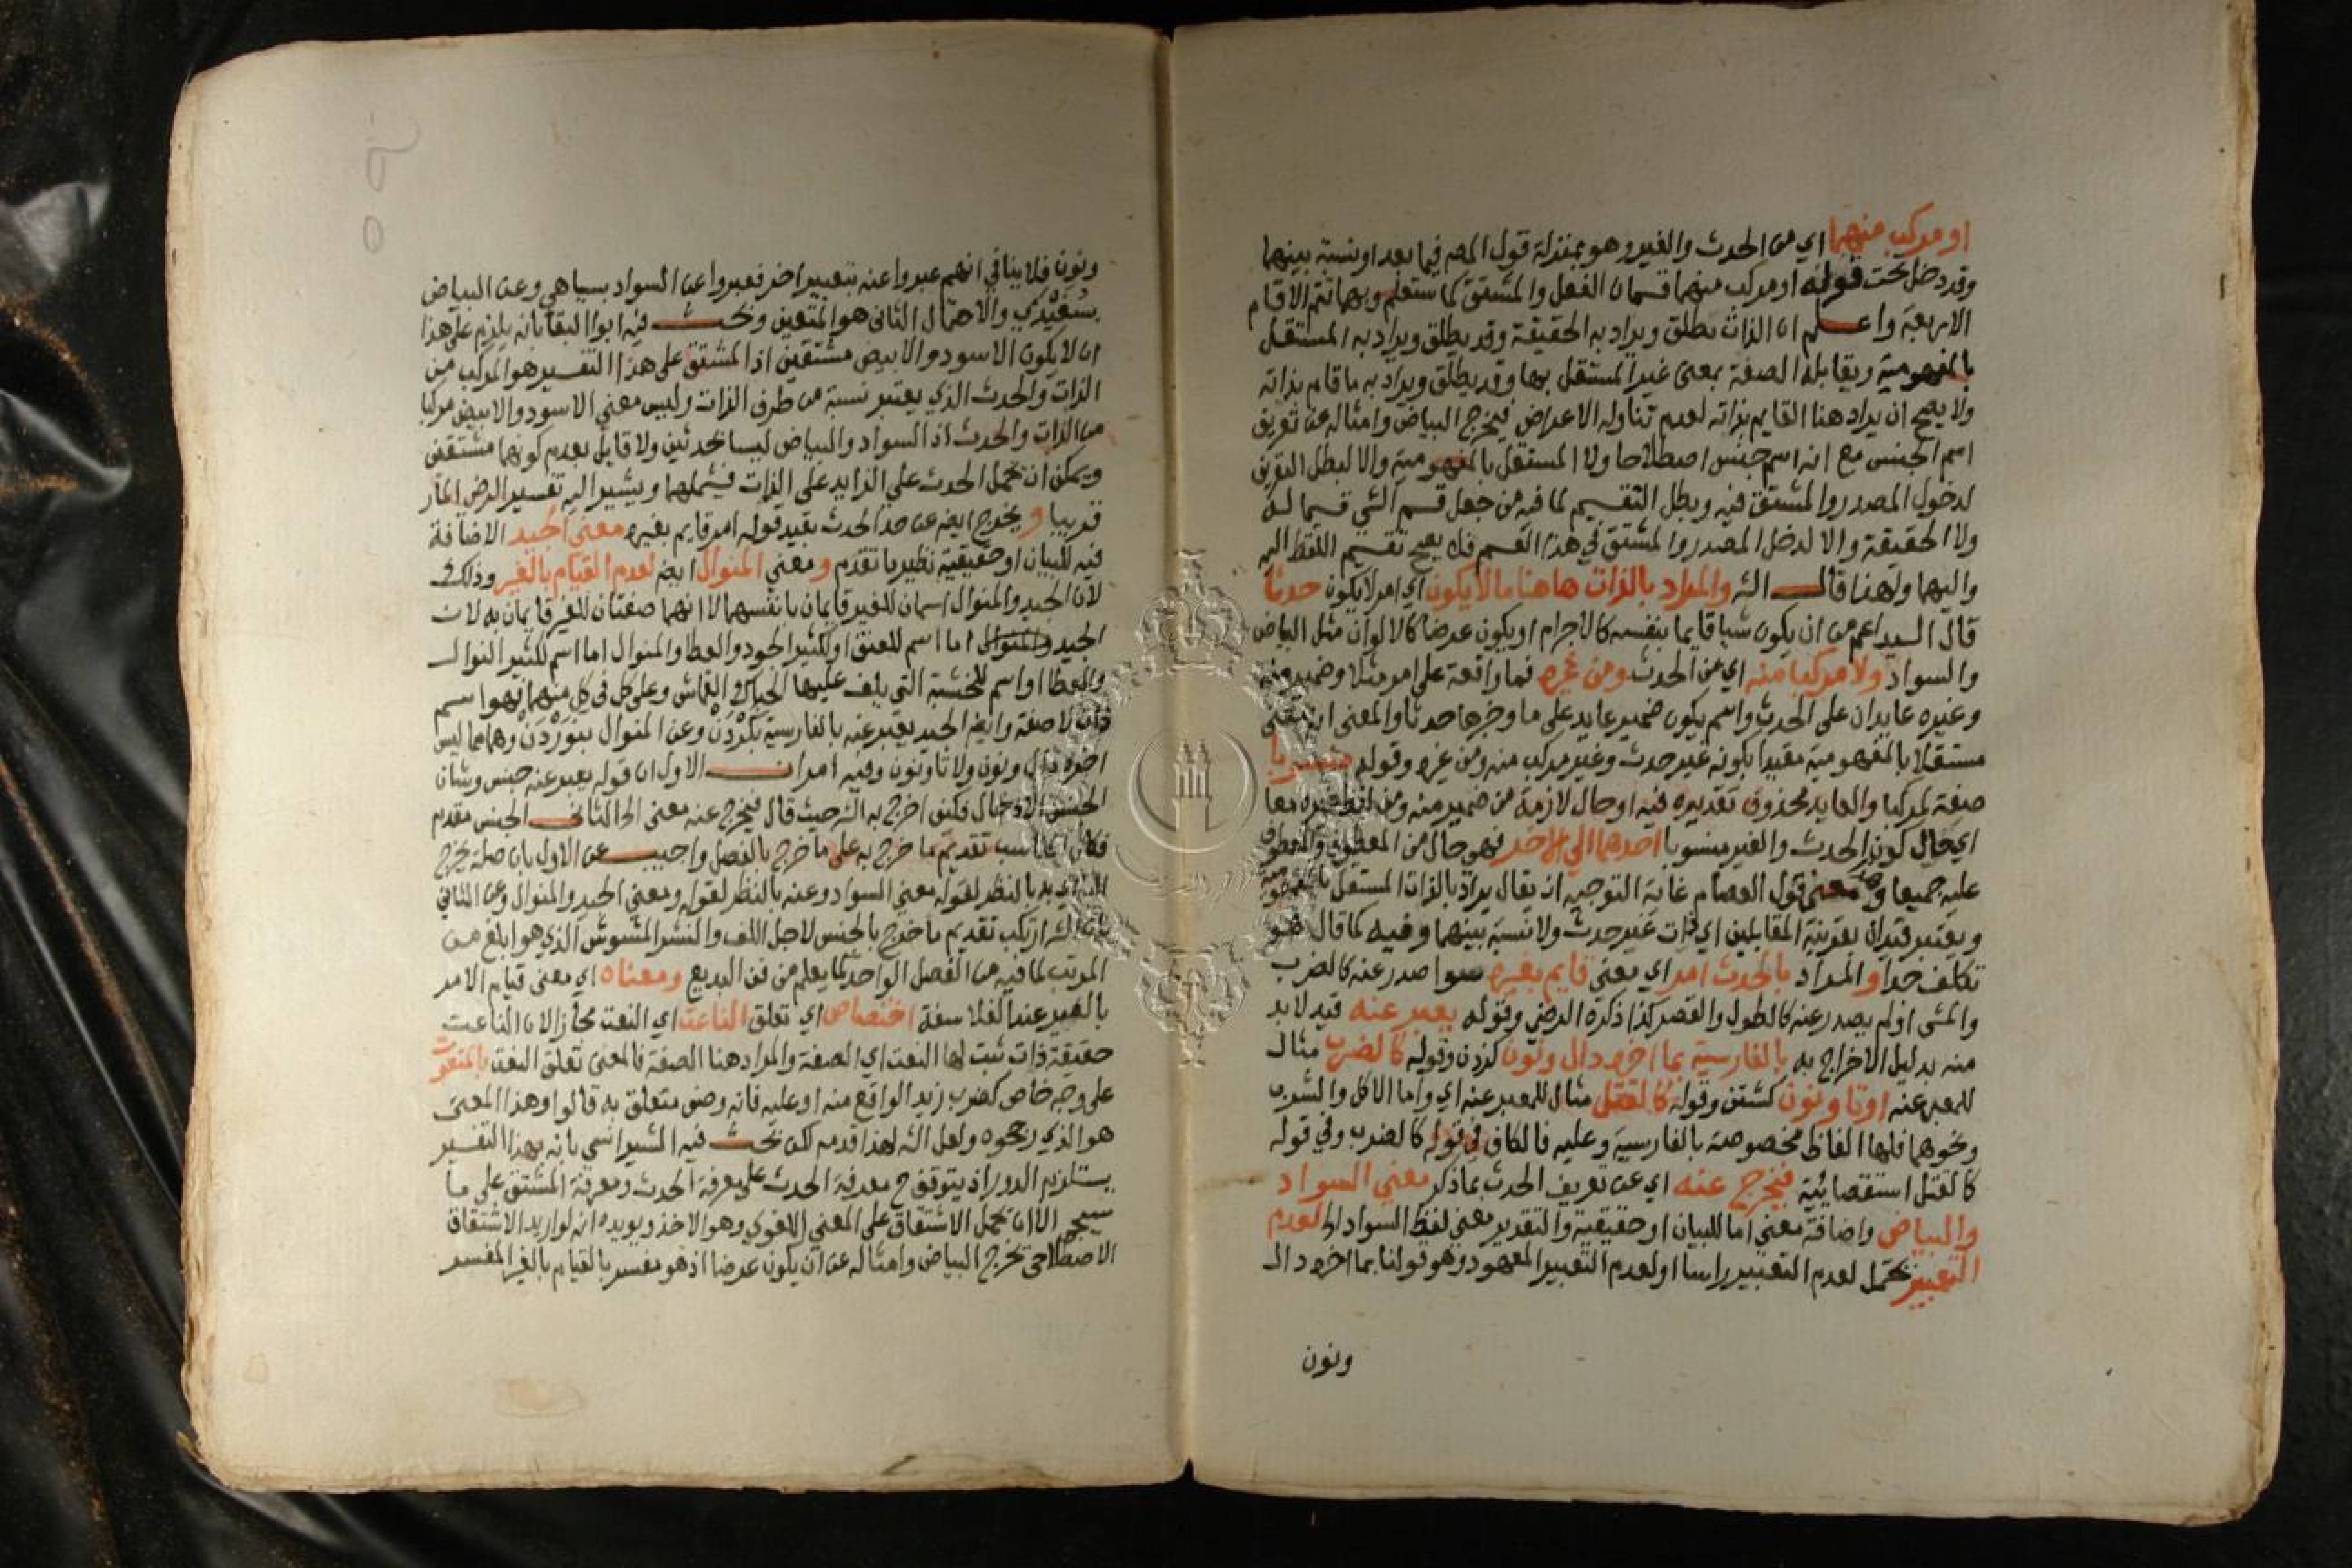 او مركب منهما اي من الحدث والغير وهو بمنزلة قول المصـ فيما بعد او نسبة بينهما
وقد دخل تحت قوله او مركب منهما قسمان الفعل والمشتق كما ستعلم وبهما تتم الاقسام
الاربعة واعلم ان الذات يطلق ويراد به الحقيقة وقد يطلق ويراد به المستقل
بالمفهومية ويقابله الصفة بمعنى غير المستقل بها وقد يطلق ويراد به ما قام بذاته
ولا يصح ان يراد هنا القايم بذاته لعدم تناوله الاعراض فيخرج البياض وامثاله عن تعريف
اسم الجنس مع انه اسم جنس اصطلاحا ولا المستقل بالمفهومية والا لبطل التعريف
لدخول المصدر والمشتق فيه وبطل التقسيم لما فيه من جعل قسم الشي قسيما له
ولا الحقيقة والا لدخل المصدر والمشتق في هذا القسم فلا يصح تقسيم اللفظ اليه
واليهما ولهذا قال الشـ والمراد بالذات هاهنا ما لا يكون اي امر لا يكون حدثا
قال السيد اعم من ان يكون شيا قايما بنفسه كالاجرام او يكون عرضا كالالوان مثل البياض
والسواد ولا مركبا منه اي من الحدث ومن غيره فما واقعة على امر مثلا وضمير منه
وغيره عايدان على الحدث واسم يكون ضمير عايد على ما وخبرها حدثا والمعنى
مستقلا بالمفهومية مقيدا بكونه غير حدث وغير مركب منه ومن غيره وقوله منسوبا
صفة لمركبا والعايد محذوف تقديره فيه او حال لازمة من ضمير منه ومن لفظ غيره معا
اي حال كون الحدث والغير منسوبا احدهما الى الاخر فهو حال من المعطوف والمعطوف
عليه جميعا و قول العصام غاية التوجيه ان يقال يراد بالذات المستقل بالمفهومية
ويعتبر قيدان بقرينة المقابلين اي ذات غير حدث ولا نسبة بينهما وفيه كما قال هو
تكلف جدا والمراد بالحدث امر اي معنى قايم بغيره سوا صدر عنه كالضرب
والمشى او لم يصدر عنه كالطول والقصر كذا ذكره الرضي وقوله يعبر عنه قيد لا بد
منه بدليل الاخراج به بالفارسية بما اخره دال ونون كزدن وقوله كالضرب مثال
للمعبر عنه او تا ونون كشتن وقوله كالقتل مثال للمعبر عنه اي واما الاكل والشرب
ونحوهما فلها الفاظ مخصوصة بالفارسية وعليه فالكاف في قوله كالضرب وفي قوله
كالقتل استقصايية فيخرج عنه اي عن تعريف الحدث بما ذكر معني السواد
والبياض واضافة معنى اما للبيان او حقيقية والتقدير يعني لفظ السواد الخ لعدم
التعبير يحتمل لعدم التعبير راسا او لعدم التعبير المعهود وهو قولنا بما اخره دال
ونون
ونون فلا ينافي انهم عبروا عنه بتعبير اخر فعبروا عن السواد بسياهي وعن البياض
بسفيدي والاحتمال الثاني هو المتعين وبحث فيه ابو البقا بانه يلزم على هذا
ان لا يكون الاسود والابيض مشتقين اذ المشتق على هذا التفسير هو المركب من
الذات والحدث الذي يعتبر نسبة من طرف الذات وليس معني الاسود والابيض مركبا
من الذات والحدث اذ السواد والبياض ليسا بحدثين ولا قايل بعدم كونهما مشتقين
ويمكن ان يحمل الحدث على الزايد على الذات فيشملهما ويشير اليه تفسير الرضي المار
قريبا و يخرج ايضـ عن حد الحدث بقيد قوله امر قايم بغيره معنى الجيد الاضافة
فيه للبيان او حقيقية نظير ما تقدم ومعني المنوال ايضـ لعدم القيام بالغير وذلك
لان الجيد والمنوال اسمان للغير قايمان بانفسهما لا انهما صفتان للغير قايمان به لان
الجيد والمنوال اما اسم للعنق او لكثير الجود والعطا والمنوال اما اسم لكثير النوال
والعطا او اسم للخشبة التي يلف عليها الحياك القماش وعلى كل في كل منهما فهو اسم
ذات لا صفة وايضـ الجيد يعبر عنه بالفارسية بكردن وعن المنوال بنوردن وهما مما ليس
اخره دال ونون ولا تا ونون وفيه امران الاول ان قوله يعبر عنه جنس وشان
الجنس الادخال وكيف اخرج به الشـ حيث قال فيخرج عنه معنى الخ الثاني الجنس مقدم
فكان المناسب تقديم ما خرج به على ما خرج بالفصل واجيب عن الاول بان صلة يخرج
اي به بالنظر لقوله معني السواد وعنه بالنظر لقوله ومعني الجيد والمنوال وعن الثاني
بان الشـ ارتكب تقديم ما خرج بالجنس لاجل اللف والنشر المشوش الذي هو ابلغ من
المرتب لما فيه من الفصل الواحد كما يعلم من فن البديع ومعناه اي معنى قيام الامر
بالغير عند الفلاسفة اختصاص اي تعلق الناعت اي النعت مجازا لان الناعت
حقيقة ذات ثبت لها النعت اي الصفة والمراد هنا الصفة فالمعنى تعلق النعت بالمنعوت
على وجه خاص كضرب زيد الواقع منه او عليه فانه وصف متعلق به قالوا وهذا المعنى
هو الذي رجحوه ولعل الشـ لهذا قدمه لكن بحث فيه الشيراسي بانه بهذا التفسير
يستلزم الدور اذ يتوقف ح معرفة الحدث على معرفة الحدث ومعرفة المشتق على ما
سيجي الا ان يحمل الاشتقاق على المعنى اللغوي وهو الاخذ ويويده انه لو اريد الاشتقاق
الاصطلاحي يخرج البياض وامثاله عن ان يكون عرضا اذ هو مفسر بالقيام بالغير المفسر